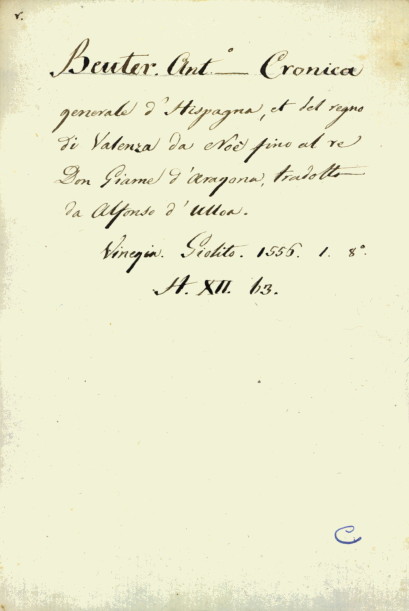 v.
Beuter. Ant.° — Cronica
generale d'Hispagna, et del regno
di Valenza da Noè fino al re
Don Giame d'Aragona, tradotto
da Alfonso d'Ulloa.
Vinegia. Giolito. 1556. 1. 8°.
H. XII. 63.
C